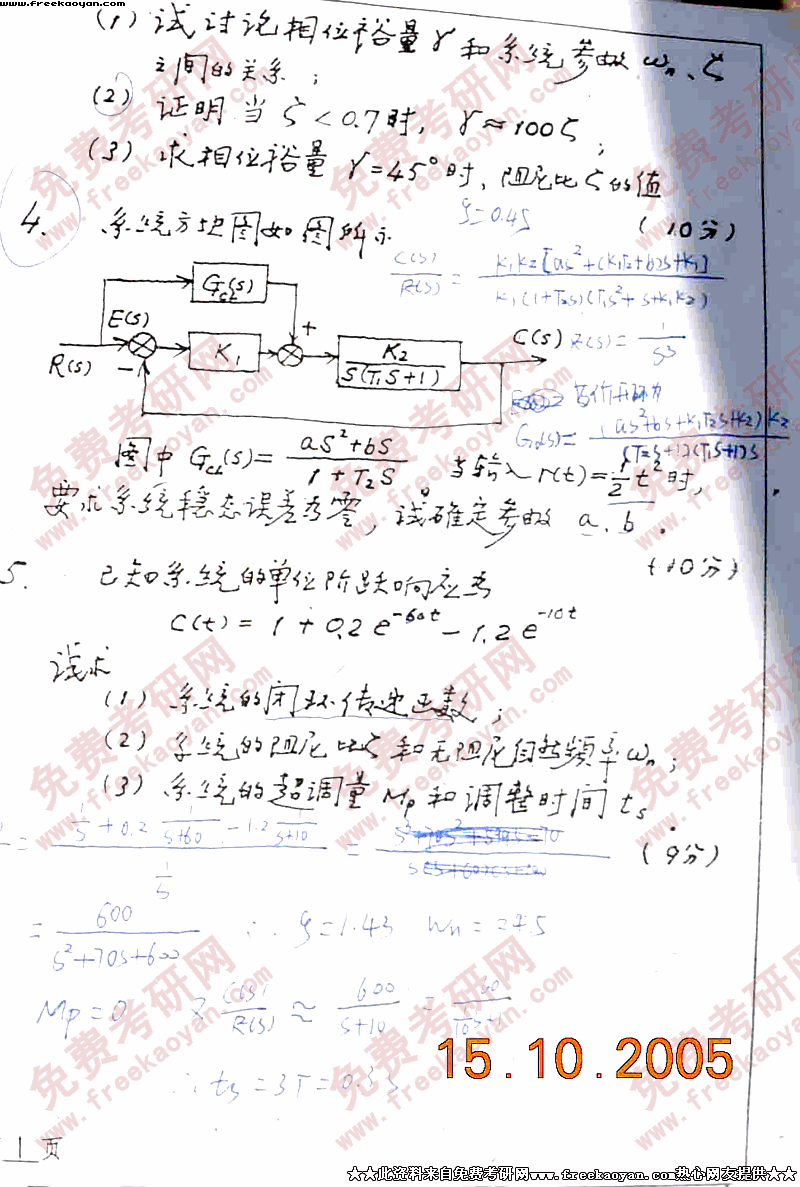 www.freekaoyan.com
(1) 试讨论相位裕量γ和系统参数ωn、ζ
之间的关系；
(2) 证明当ζ<0.7时，γ≈100ζ；
(3) 求相位裕量γ=45°时，阻尼比ζ的值
ζ=0.45
(10分)
4. 系统方块图如图所示
C(s)/R(s) = K1K2[as²+(K1T2+b)s+K1] / K1(1+T2s)(T1s²+s+K1K2)
Gc2(s)
E(s)
+
R(s)
-
K1
K2/S(T1S+1)
C(s)
R(s)=1/s³
等价开环为
G0(s)=(as²+bs+K1T2s+K2)K2/(T2s+1)(T1s+1)s
图中 Gc2(s)= aS²+bS / 1+T2S 。当输入r(t)=1/2 t²时，
要求系统稳态误差为零，试确定参数 a、b。
(10分)
5. 已知系统的单位阶跃响应为
C(t) = 1+0.2e^-60t-1.2e^-10t
试求
(1) 系统的闭环传递函数；
(2) 系统的阻尼比ζ和无阻尼自然频率ωn；
(3) 系统的超调量Mp和调整时间ts。
(9分)
= 1/s+0.2 1/s+60 -1.2 1/s+10 / 1/s =
= 600 / s²+70s+600 ∴ ζ=1.43 Wn=24.5
Mp=0 又 C(s)/R(s) ≈ 600/s+10 = 60/10s+1
∴ ts=3T=0.3s
15.10.2005
1 页
免费考研网
www.freekaoyan.com
★★此资料来自免费考研网www.freekaoyan.com热心网友提供★★